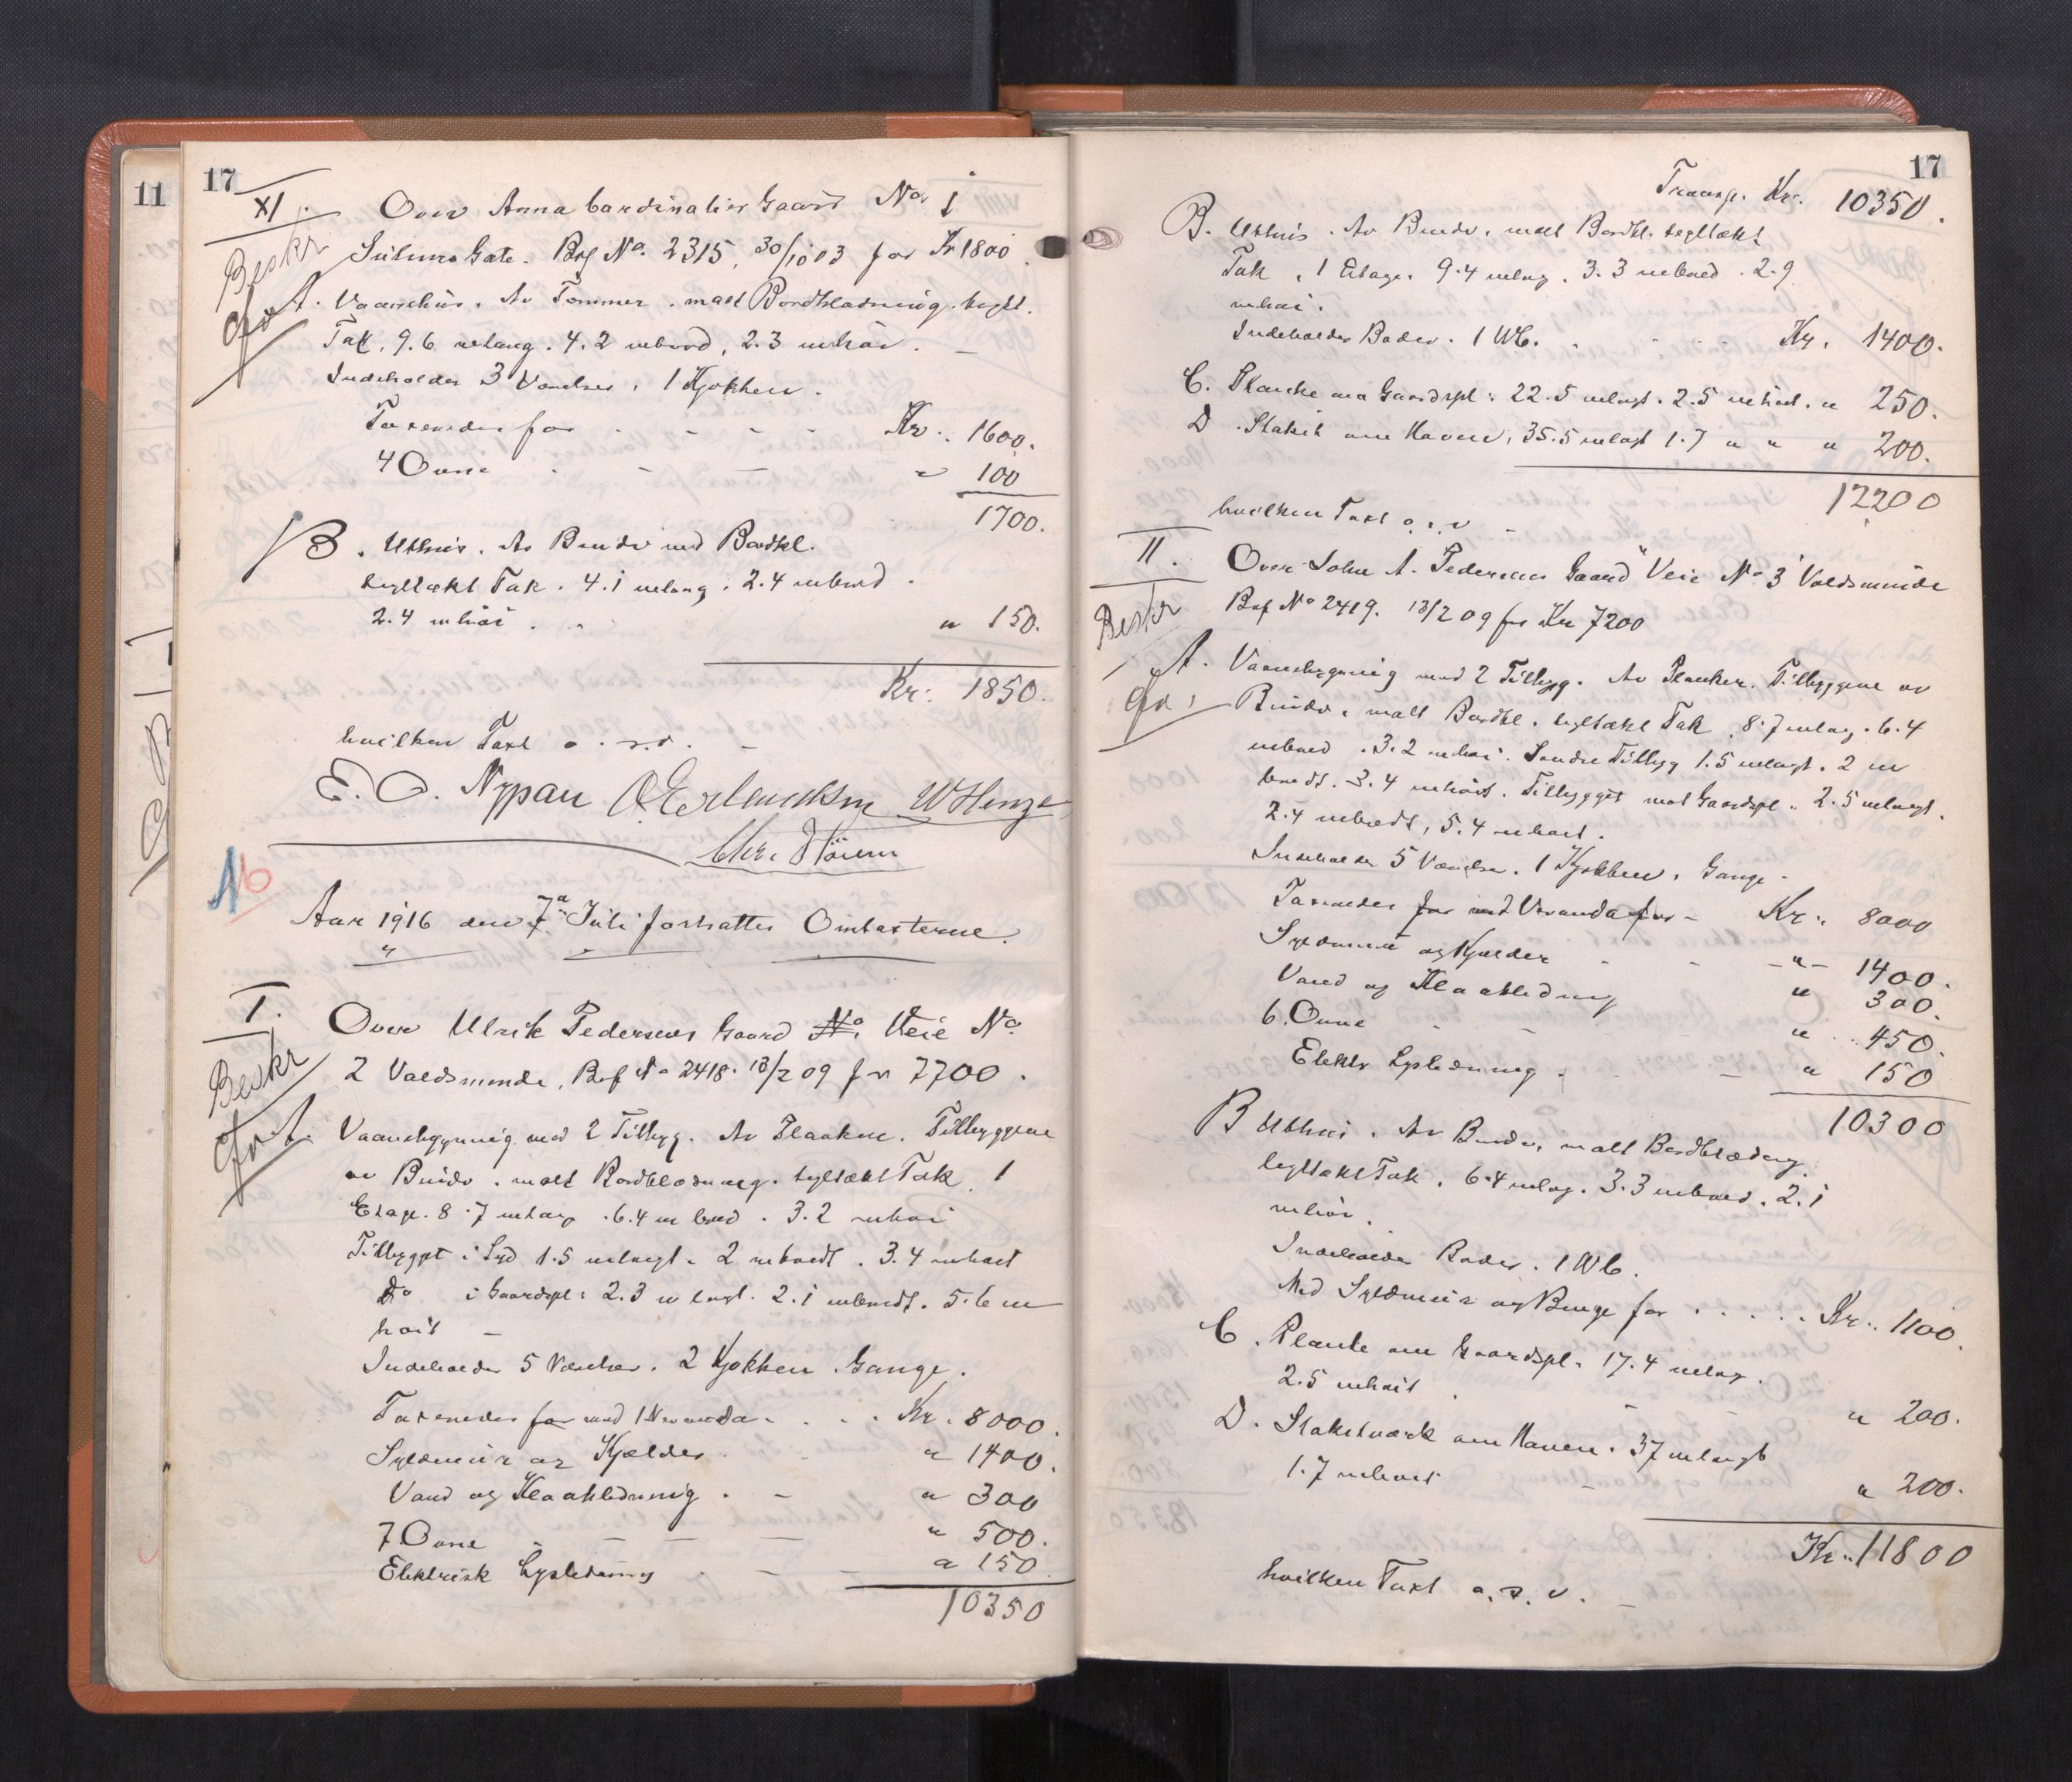 11
17
XI. Over Anna Cardinaliers Gaard No. 1
Beskr
Suhms Gate. Brf No. 2315, 30/10 03 for Kr 1800.
A. Vaanehus. Av Tømmer. malt Bordklædning. teglt.
Tak, 9.6 m lang. 4.2 m bred, 2.3 m høi.
Indeholder 3 Værelser, 1 Kjøkken.
Taxeredes for - - - - Kr. 1600.
4 Ovne - - - " 100
1700.
B. Uthus. Av Bindv med Bordkl.
tegltækt Tak. 4.1 m lang. 2.4 m bred.
2.4 m høi . . " 150.
Kr. 1850.
hvilken Taxt o. s. v. -
E. O. Nypan O Erlendksen W Hinze
Chr. Störem
N6
Aar 1916 den 7de Juli fortsattes Omtaxterne.
I. Over Ulrik Pedersens Gaard No. Veie No.
Beskr
2 Voldsminde, Brf No 2418. 13/2 09 for 7700.
A. Vaanebygning med 2 Tilbyg. Av Planker. Tilbyggene
av Bindv. malt Bordklædning. tegltækt Tak. 1
Etage. 8.7 m lang. 6.4 m bred. 3.2 m høi
Tilbygget i Syd 1.5 m langt. 2 m bredt. 3.4 m høit
Do i Gaardspl. 2.3 m langt. 2.1 m bredt. 5.6 m
høit -
Indeholder 5 Værelser. 2 Kjøkken. Gange.
Taxeredes for med 1 Veranda . . . Kr. 8000.
Syldmur og Kjælder . - " 1400.
Vand og Kloakledning . - " 300
7 Ovne - - - " 500.
Elektrisk Lysledning . - - " 150.
10350
17
Transp. Kr. 10350.
B. Uthus. Av Bindv. malt Bordkl. tegltækt
Tak, 1 Etage. 9.4 m lang. 3.3 m bred. 2.9
m høi.
Indeholder Boder. 1 WC. . - . . Kr. 1400.
C. Planke om Gaardspl. 22.5 m langt. 2.5 m høit. " 250.
D. Stakit om Haven, 35.5 m langt 1.7 " " " 200.
12200
hvilken Taxt o. s. v -
II. Over John A. Pedersens Gaard Veie No 3 Voldsminde
Beskr
Brf No 2419. 13/2 09 for Kr 7200
A. Vaanebygning med 2 Tilbyg. Av Planker. Tilbyggene av
Bindv. malt Bordkl. tegltækt Tak. 8.7 m lang. 6.4
m bred. 3.2 m høi. Søndre Tilbyg 1.5 m langt. 2 m
bredt. 3.4 m høit. Tilbygget mot Gaardspl. 2.5 m langt.
2.4 m bredt, 5.4 m høit.
Indeholder 5 Værelser. 1 Kjøkken, Gange -
Taxeredes for med Veranda for - Kr. 8000
Syldmur og Kjælder - - - " - 1400.
Vand og Kloakledning " 300.
6. Ovne - - " 450.
Elektr Lysledning . - " 150
10300
B Uthus. Av Bindv. malt Bordklædning.
tegltækt Tak. 6.4 m lang. 3.3 m bred. 2.1
m høi.
Indeholder Boder. 1 WC.
Med Syldmur og Binge for . . . . Kr. 1100.
C. Planke om Gaardspl. 17.4 m lang.
2.5 m høit . - " 200.
D. Stakitværk om Haven. 37 m langt
1.7 m høit - " 200.
Kr. 11800
hvilken Taxt o. s. v. -